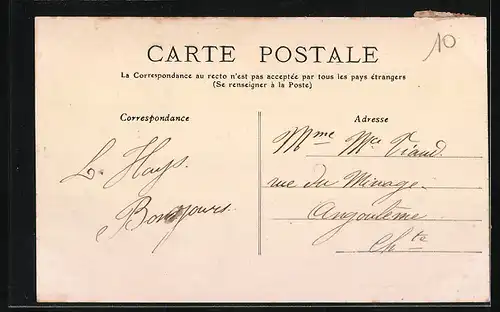 10
CARTE POSTALE
La Correspondance au recto n'est pas acceptée par tous les pays étrangers
(Se renseigner à la Poste)
Correspondance
Adresse
L. Hays.
Bonjours.
Mme Mce Viaud.
rue du Minage.
Angoulème
Ch te